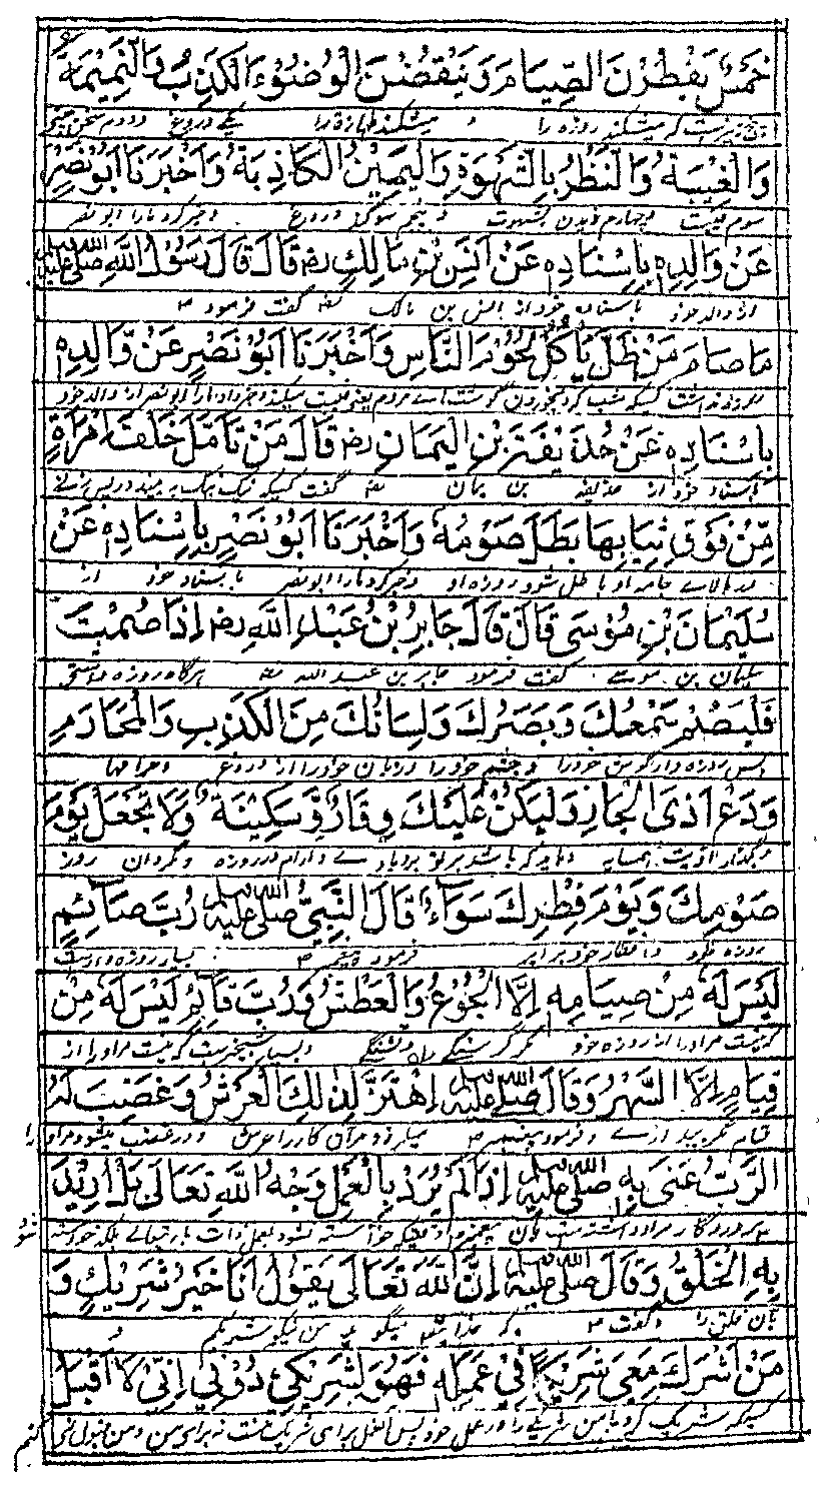 خَمْسٌ يُفَطِّرْنَ الصِّيَامَ وَيَنْقُضْنَ الْوُضُوْءَ الْكَذِبُ وَالنَّمِيْمَةُ
میشکند روزه را و میشکند طهارة را یکے دروغ ودوم سخن چینی
وَالْغِيْبَةُ وَالنَّظْرُ بِالشَّهْوَةِ وَالْيَمِيْنُ الْكَاذِبَةُ وَاَخْبَرَنَا اَبُوْ نَصْرٍ
سوم غیبت وچهارم دیدن بشهوت و پنجم سوگند دروغ وخبر کرد مارا ابو نصر
عَنْ وَالِدِهٖ بِاِسْنَادِهٖ عَنْ اَنَسِ بْنِ مَالِكٍ رض قَالَ قَالَ رَسُوْلُ اللهِ صلى الله عليه وسلم
از والد خود باسناد خود از انس بن مالک رض گفت فرمود ص
مَا صَامَ مَنْ ظَلَّ يَأْكُلُ لُحُوْمَ النَّاسِ وَاَخْبَرَنَا اَبُوْ نَصْرٍ عَنْ وَّالِدِهٖ
روزه نداشت کسیکه شب کرد بخوردن گوشتهاے مردم یعنی غیبت میکند وخبر داد مارا ابو نصر از والد خود
بِاِسْنَادِهٖ عَنْ حُذَيْفَةَ بْنِ الْيَمَانِ رض قَالَ مَنْ تَاَمَّلَ خَلْفَ امْرَأَةٍ
باسناد خود از حذیفه بن یمان رض گفت کسیکه نیک به بیند در پس زنے
مِّنْ فَوْقِ ثِيَابِهَا بَطَلَ صَوْمُهٗ وَاَخْبَرَنَا اَبُوْ نَصْرٍ بِاِسْنَادِهٖ عَنْ
از بالاے جامه او باطل شود روزه او وخبر کرد مارا ابو نصر باسناد خود از
سُلَيْمَانَ بْنِ مُوْسٰى قَالَ قَالَ جَابِرُ بْنُ عَبْدِ اللهِ رض اِذَا صُمْتَ
سلیمان بن موسے گفت فرمود جابر بن عبد الله رض هرگاه روزه داشتی
فَلْيَصُمْ سَمْعُكَ وَبَصَرُكَ وَلِسَانُكَ مِنَ الْكَذِبِ وَالْمَحَارِمِ
پس روزه دار گوش خود را و چشم خود را وزبان خود را از دروغ وحرامها
وَدَعْ اَذَى الْجَارِ وَلْيَكُنْ عَلَيْكَ وِقَارٌ وَّسَكِيْنَةٌ وَلَا تَجْعَلْ يَوْمَ
وبگذار اذیت همسایه وباید که باشد بر تو بردبارے وآرام در روزه ومگردان روز
صَوْمِكَ وَيَوْمَ فِطْرِكَ سَوَآءً قَالَ النَّبِيُّ صلى الله عليه وسلم رُبَّ صَائِمٍ
روزه خود وافطار خود برابر فرمود پیغمبر ص بسیار روزه دارست
لَيْسَ لَهٗ مِنْ صِيَامِهٖ اِلَّا الْجُوْعُ وَالْعَطْشُ وَرُبَّ قَآئِمٍ لَيْسَ لَهٗ مِنْ
که نیست مراورا از روزه خود مگر گرسنگے وتشنگے وبسیار شبخیزست که نیست مراورا از
قِيَامٍ اِلَّا السَّهْرُ وَقَالَ صلى الله عليه وسلم اِهْتَزَّ لِذٰلِكَ الْعَرْشُ وَغَضِبَ لَهُ
قیام مگر بیدارے وفرمود پیغمبر ص میلرزد مر آن کار را عرش ودر غضب میشود مراورا
الرَّبُّ عَنٰى بِهٖ صلى الله عليه وسلم اِذَا لَمْ يُرِدْ بِالْعَمَلِ وَجْهَ اللهِ تَعَالٰى بَلْ اُرِيْدَ
پروردگار مراد داشته ست بآن پیغمبر وقتیکه خواسته نشود بعمل ذات باریتعالے بلکه خواسته شود
بِهِ الْخَلْقُ وَقَالَ صلى الله عليه وسلم اِنَّ اللهَ تَعَالٰى يَقُوْلُ اَنَا خَيْرُ شَرِيْكٍ وَ
بآن خلق را وگفت ص که خدایتعالے میگوید من نیکو شریکم و
مَنْ اَشْرَكَ مَعِيَ شَرِيْكًا فِيْ عَمَلِهٖ فَهُوَ لِشَرِيْكِيْ دُوْنِيْ اِنِّيْ لَا اَقْبَلُ
کسیکه شریک کرد با من شریکے را در عمل خود پس آن عمل براے شریک منست نه براے من ومن قبول نمی کنم